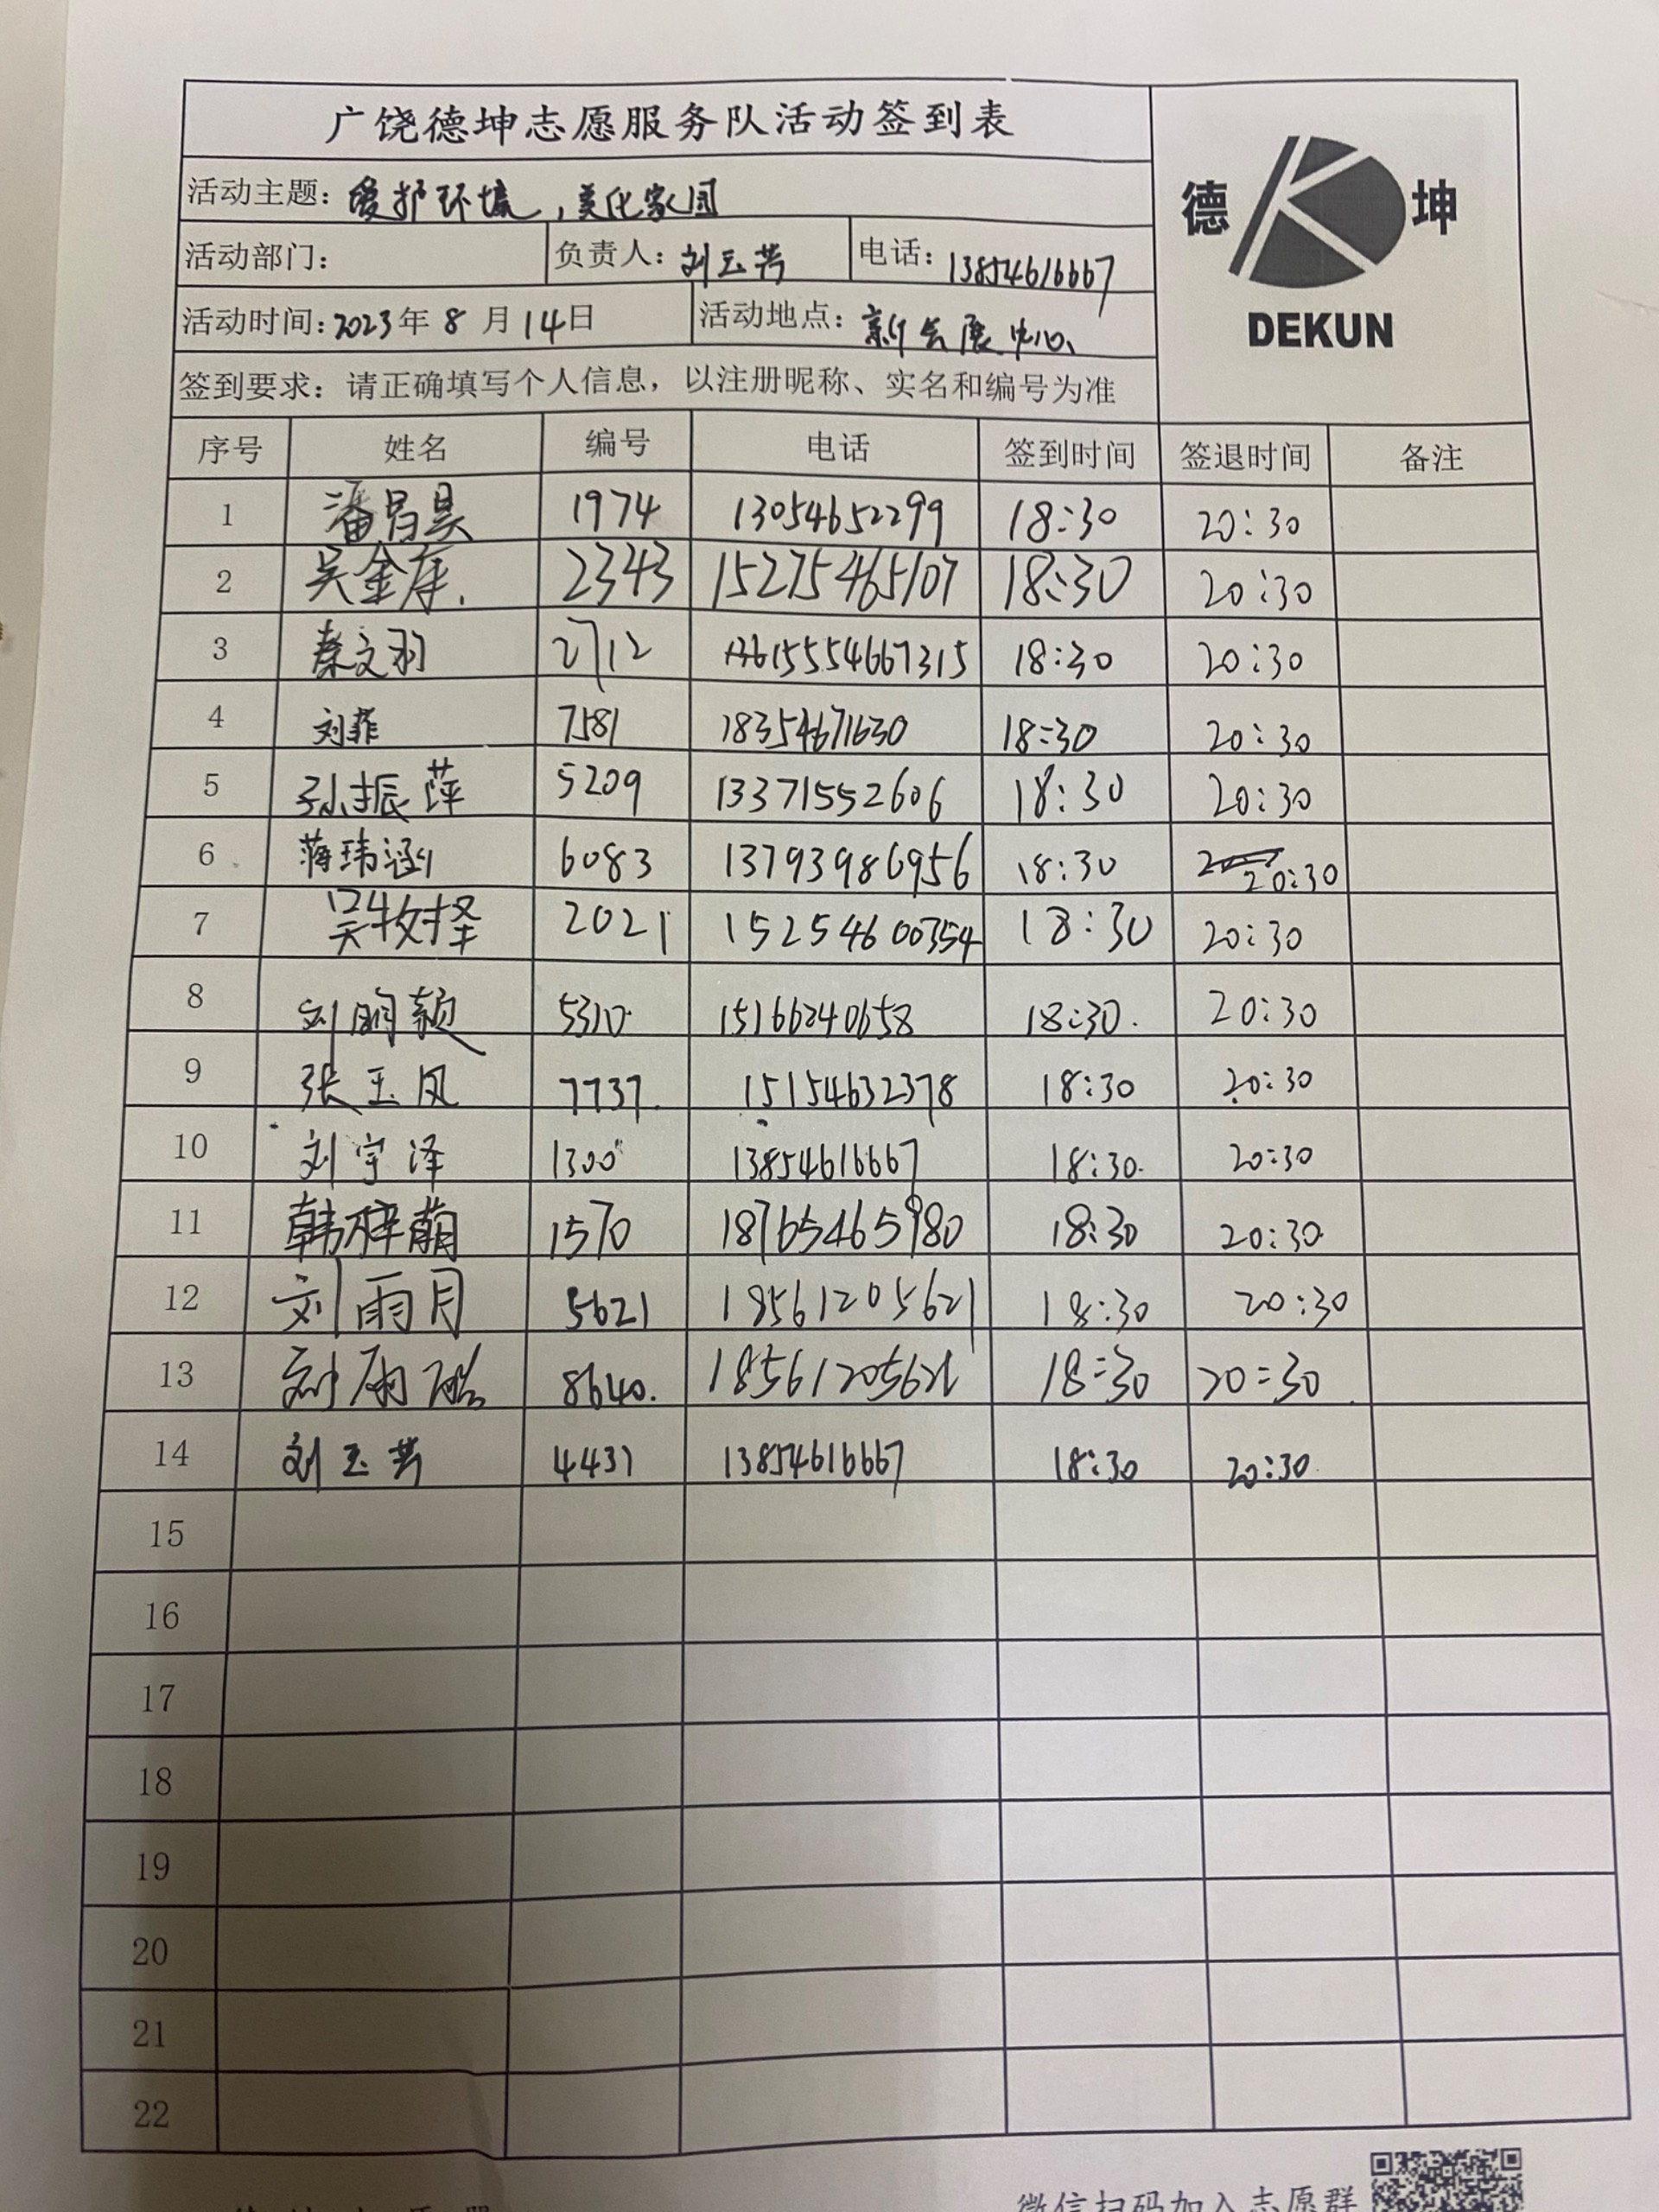 广饶德坤志愿服务队活动签到表
德 坤
DEKUN
活动主题：爱护环境，美化家园
活动部门： 负责人：刘玉芳 电话：13854616667
活动时间：2023年8月14日 活动地点：新会展中心
签到要求：请正确填写个人信息，以注册昵称、实名和编号为准
序号 姓名 编号 电话 签到时间 签退时间 备注
1 潘昌昊 1974 13054652299 18:30 20:30
2 吴金库 2343 15275465107 18:30 20:30
3 秦文羽 2712 15554667315 18:30 20:30
4 刘菲 7581 18354671630 18:30 20:30
5 孙振萍 5209 13371552606 18:30 20:30
6 蒋玮涵 6083 13793986956 18:30 20:30
7 吴牧择 2021 15254600354 18:30 20:30
8 刘明颖 5310 15166240658 18:30 20:30
9 张玉凤 7737 15154632378 18:30 20:30
10 刘宇泽 1300 13854616667 18:30 20:30
11 韩梓萌 1570 18765465980 18:30 20:30
12 刘雨月 5621 18561205621 18:30 20:30
13 刘雨 8640 18561205621 18:30 20:30
14 刘玉芳 4431 13854616667 18:30 20:30
15
16
17
18
19
20
21
22
微信扫码加入志愿群